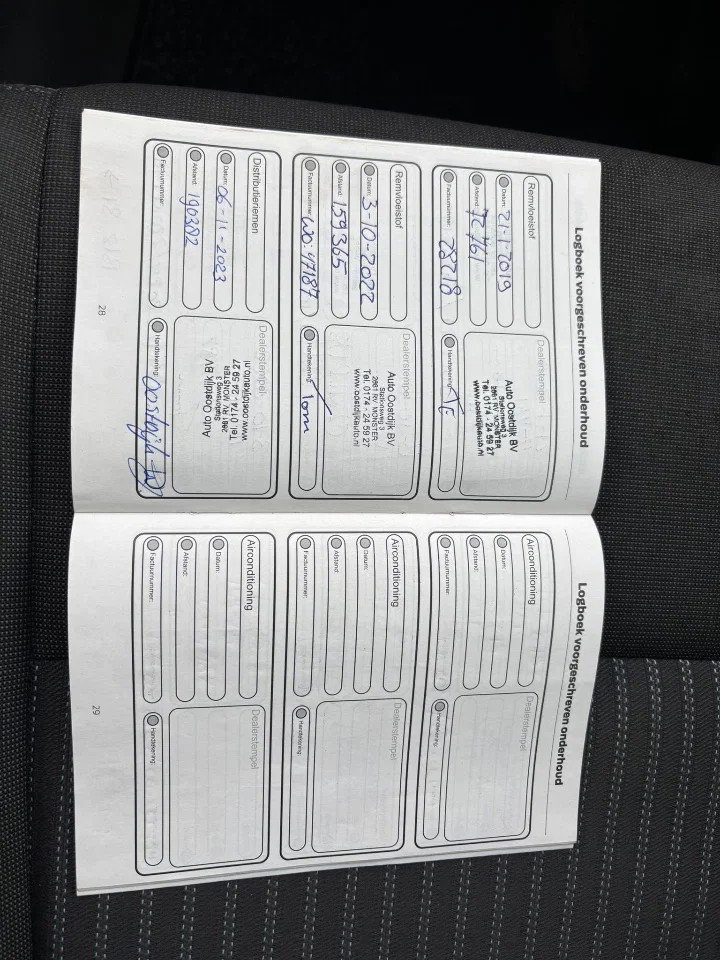 Logboek voorgeschreven onderhoud
Remvloeistof
Datum: 21-1-2019
Afstand: 72761
Factuurnummer: 28218
Dealerstempel
Auto Oostdijk BV
Stationsweg 3
2681 RV MONSTER
Tel. 0174 - 24 59 27
www.oostdijkauto.nl
Handtekening:
Remvloeistof
Datum: 3-10-2022
Afstand: 159365
Factuurnummer: WO: 47187
Dealerstempel
Auto Oostdijk BV
Stationsweg 3
2681 RV MONSTER
Tel. 0174 - 24 59 27
www.oostdijkauto.nl
Handtekening: Tom
Distributieriemen
Datum: 06-11-2023
Afstand: 190382
Factuurnummer:
Dealerstempel
Auto Oostdijk BV
Stationsweg 3
2681 RV MONSTER
Tel. 0174 - 24 59 27
www.oostdijkauto.nl
Handtekening:
28
Logboek voorgeschreven onderhoud
Airconditioning
Datum:
Afstand:
Factuurnummer:
Dealerstempel
Handtekening:
Airconditioning
Datum:
Afstand:
Factuurnummer:
Dealerstempel
Handtekening:
Airconditioning
Datum:
Afstand:
Factuurnummer:
Dealerstempel
Handtekening:
29